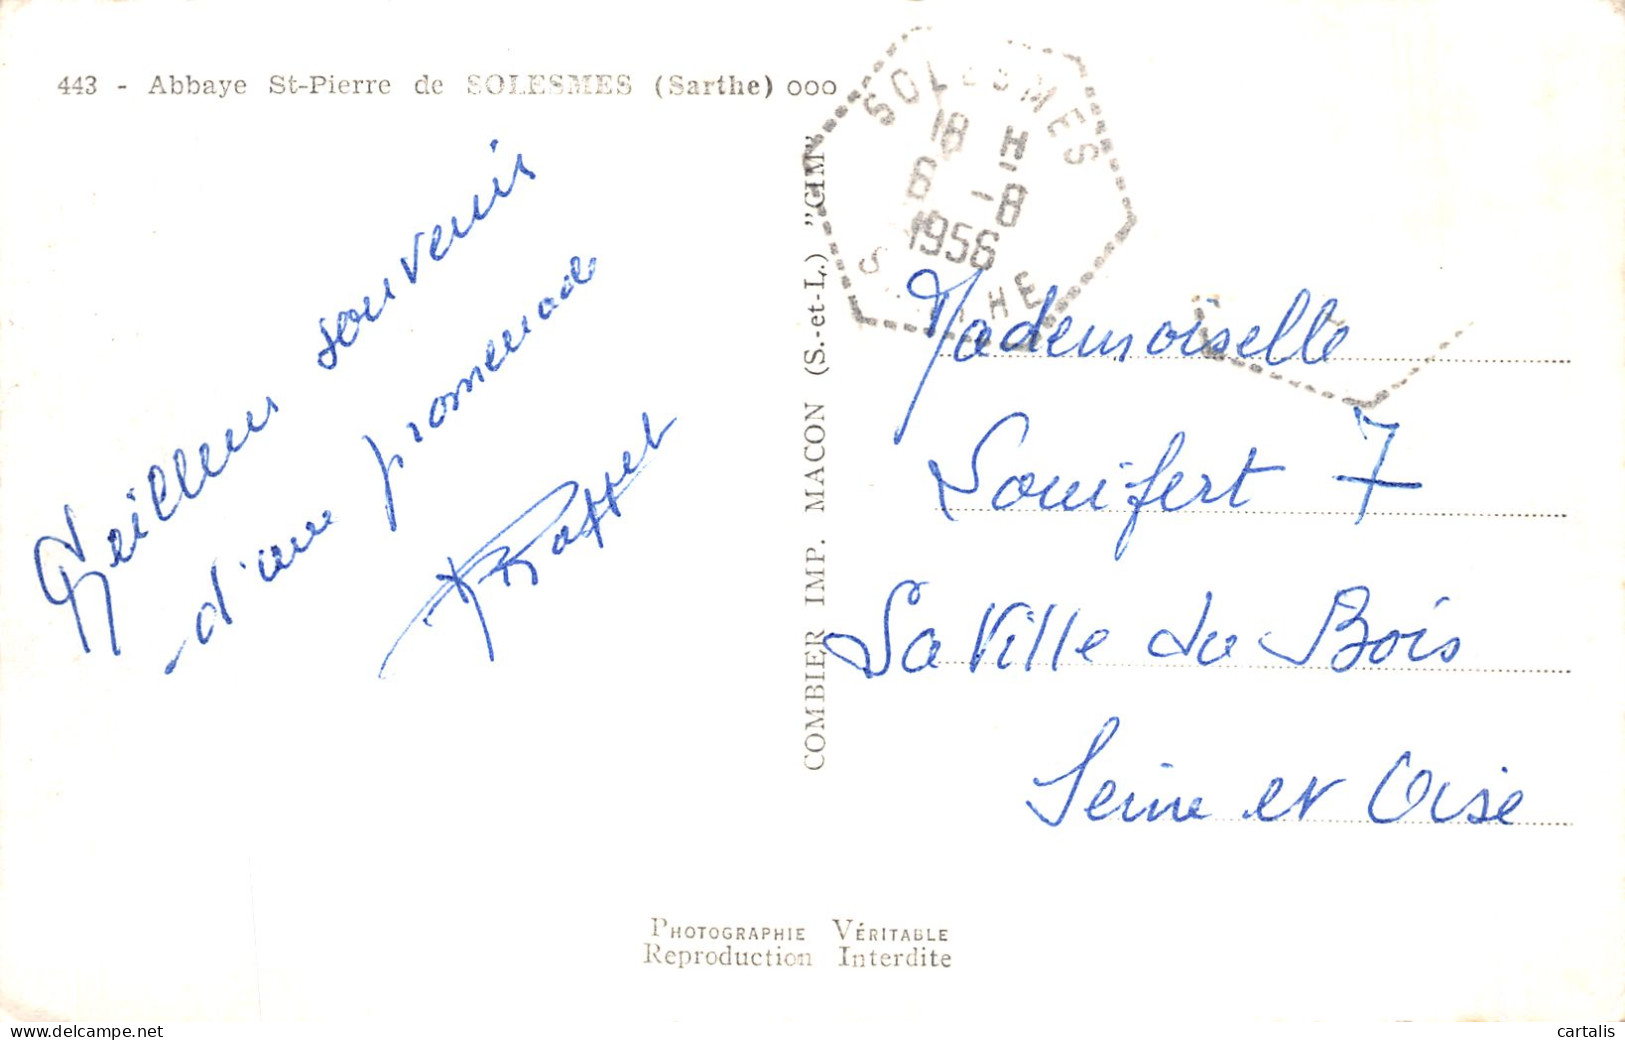 443 - Abbaye St-Pierre de SOLESMES (Sarthe) ooo
SOLESMES
18 H
6 -8
1956
S HE
Meilleurs souvenirs
d'une promenade
Mademoiselle
7
La Ville du Bois
Seine et Oise
COMBIER IMP. MACON (S.-et-L.) "CIM"
PHOTOGRAPHIE VÉRITABLE
Reproduction Interdite
cartalis